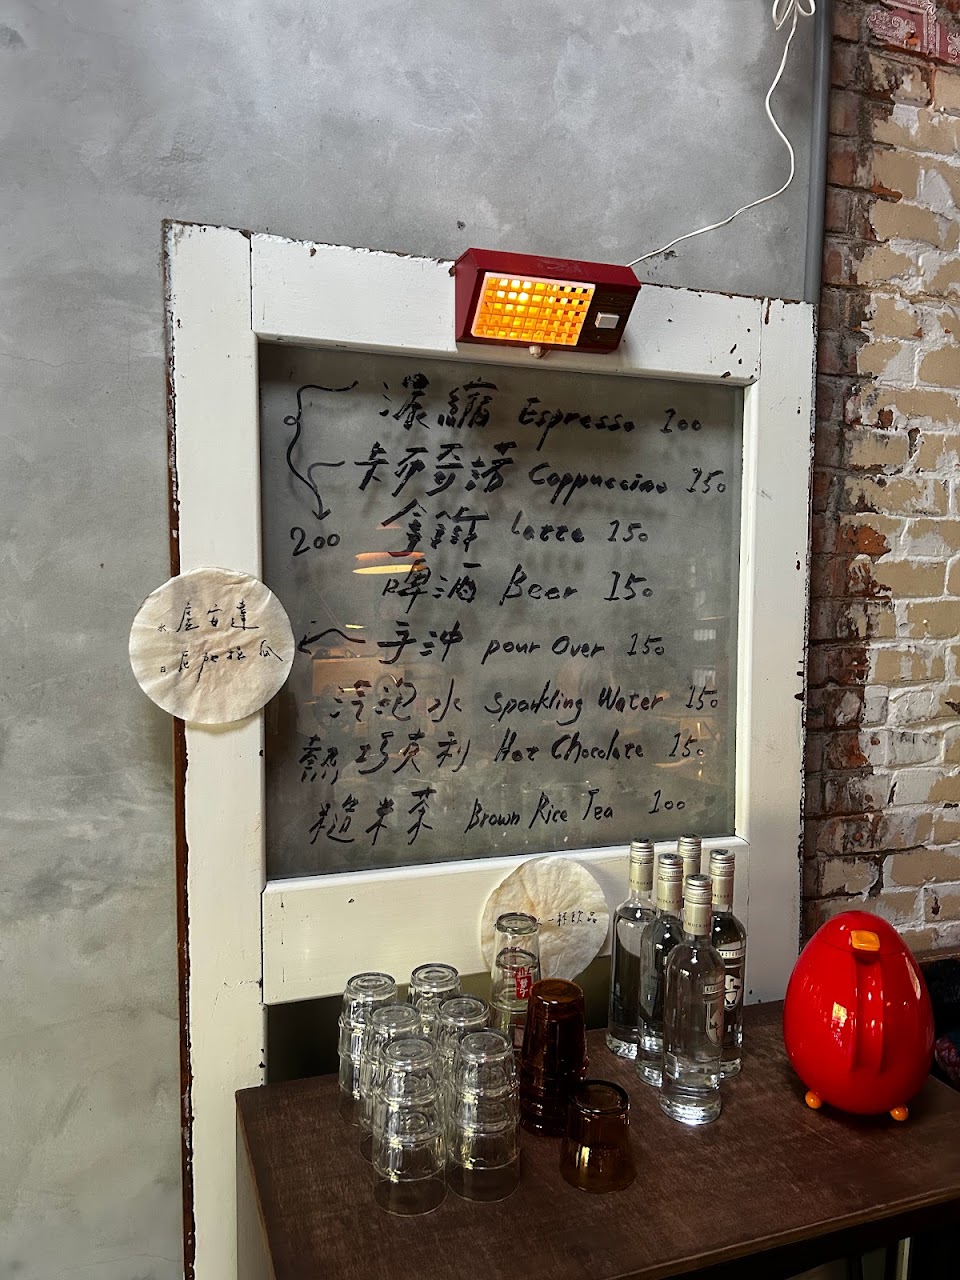 濃縮 Espresso 100
卡布奇諾 Cappuccino 150
200 拿鐵 Latte 150
啤酒 Beer 150
手沖 pour Over 150
水 盧安達
日 尼加拉瓜
汽泡水 Sparkling Water 150
熱巧克利 Hot Chocolate 150
糙米茶 Brown Rice Tea 100
一杯飲品